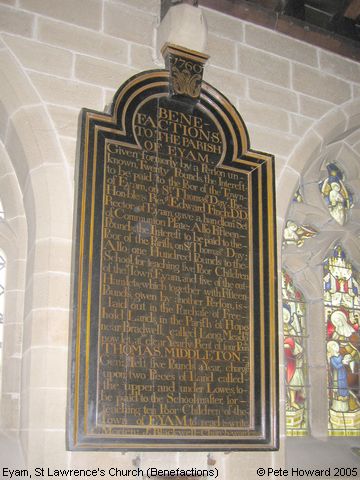 1760
BENE-
FACTIONS,
TO THE PARISH
OF EYAM.
Given formerly by a Person un-
known Twenty Pounds, the Interest
to be paid to the Poor of the Town
of Eyam, on St Thomas's Day. The
Honble & Revd Edward Finch DD
Rector of Eyam, gave a handsom Set
of Communion Plate. Also Fifteen
Pounds Interest to be paid to the
Poor of the Parish, on St Thomas's Day;
Also One Hundred Pounds to the
School for teaching five Poor Children
of the Town of Eyam, and five of the out
Hamlets, which together with Fifteen
Pounds given by another Person, is
Laid out in the Purchase of Free-
hold Lands in the Parish of Hope
near Bradwell called Long Meadow
now let at clear Yearly Rent of four Pds
THOMAS MIDDLETON.
Gent: left five Pounds a Year, charg'd
upon two Pieces of Land called
the upper and under Lowes, to
be paid to the School master, for
teaching ten Poor Children of the
Town of EYAM to read & write
Blackwell Church-warden
Eyam, St Lawrence's Church (Benefactions) ©Peter Howard 2005